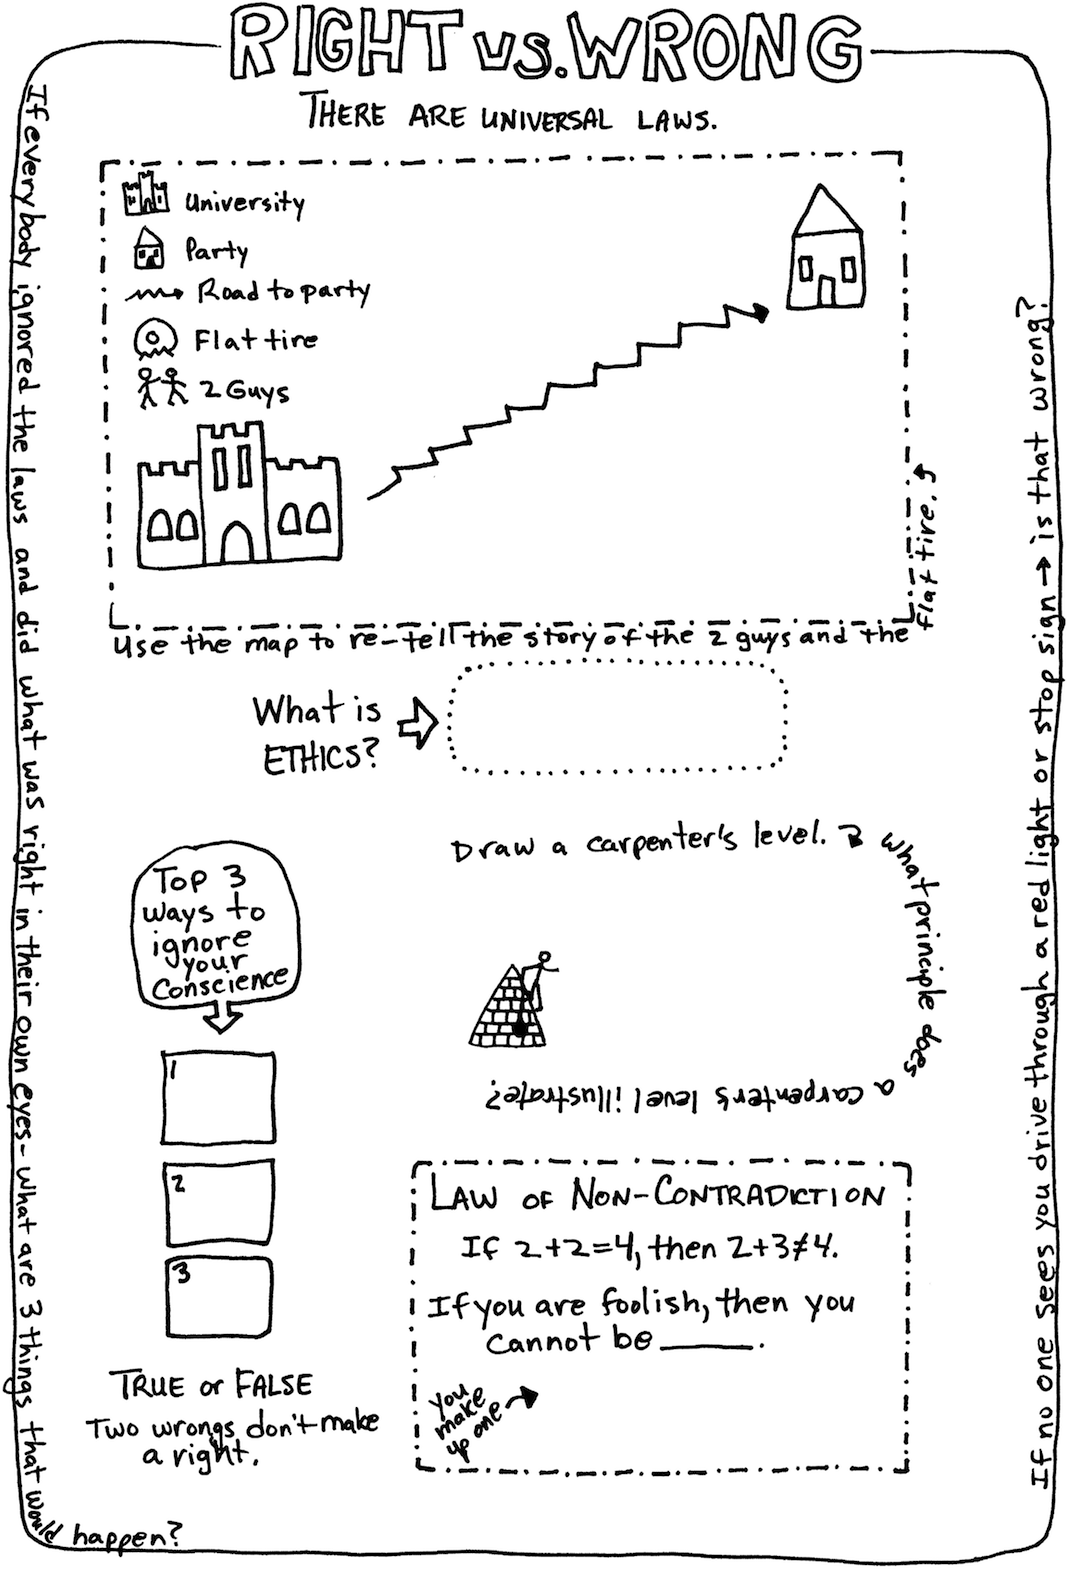 RIGHT vs. WRONG
THERE ARE UNIVERSAL LAWS.
University
Party
Road to party
Flat tire
2 Guys
Use the map to re-tell the story of the 2 guys and the
flat tire.
What is
ETHICS?
Draw a carpenter's level.
what principle does
a carpenters level illustrate?
Top 3
ways to
ignore
your
Conscience
1
2
3
TRUE or FALSE
Two wrongs don't make
a right.
LAW OF NON-CONTRADICTION
If 2+2=4, then 2+3≠4.
If you are foolish, then you
cannot be ______.
you
make
up one
If everybody ignored the laws and did what was right in their own eyes- what are 3 things that would happen?
If no one sees you drive through a red light or stop sign → is that wrong?